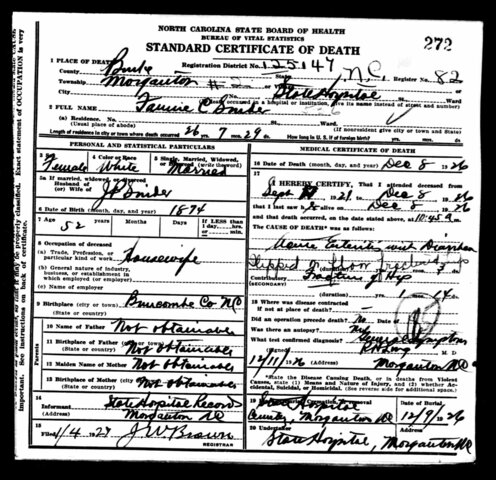 NORTH CAROLINA STATE BOARD OF HEALTH
BUREAU OF VITAL STATISTICS
STANDARD CERTIFICATE OF DEATH
272
1 PLACE OF DEATH
Registration District No. 125-147
County Burke State N.C. Register No. 82
Township Morganton
City No. State Hospital St. Ward
(If death occurred in a hospital or institution, give its name instead of street and number)
2 FULL NAME Fannie C Snider
(a) Residence. No. St. Ward
(Usual place of abode) (If nonresident give city or town and State)
Length of residence in city or town where death occurred 26 yrs. 7 mos. 29 ds. How long in U. S. if of foreign birth? yrs. mos. ds.
PERSONAL AND STATISTICAL PARTICULARS
3 Sex Female 4 Color or Race White 5 Single, Married, Widowed, or Divorced Married
5a If married, widowed, or divorced
Husband of
(or) Wife of J P Snider
6 Date of Birth (month, day, and year) 1874
7 Age 52 years months days If LESS than 1 day, hrs. or min.
8 Occupation of deceased
(a) Trade, Profession, or particular kind of work Housewife
(b) General nature of industry, business, or establishment in which employed (or employer)
(c) Name of employer
9 Birthplace (city or town) Buncombe Co NC
(State or country)
Parents
10 Name of Father Not obtainable
11 Birthplace of Father (city or town) Not obtainable
(State or country)
12 Maiden Name of Mother Not obtainable
13 Birthplace of Mother (city or town) Not obtainable
(State or country)
14 Informant State Hospital Record
(Address) Morganton NC
15 Filed 1/4 1927 J. W. Brown
REGISTRAR
MEDICAL CERTIFICATE OF DEATH
16 Date of Death (month, day, and year) Dec 8 1926
17 I HEREBY CERTIFY, That I attended deceased from
Sept 1921 to Dec 8 1926
that I last saw her alive on Dec 8 1926
and that death occurred, on the date stated above, at 10:45 a m.
The CAUSE OF DEATH* was as follows:
Acute Enteritis with Diarrhea
Slipped on floor
Contributory Fracture of Hip
(SECONDARY)
(duration) yrs. 1 mos. 14 ds.
18 Where was disease contracted
if not at place of death?
Did an operation precede death? No Date of
Was there an autopsy? No
What test confirmed diagnosis? Symptoms
(Signed) M. D.
12/11 1926 (Address) Morganton NC
*State the Disease Causing Death, or in deaths from Violent Causes, state (1) Means and Nature of Injury, and (2) whether Accidental, Suicidal, or Homicidal. (See reverse side for additional space.)
19 Place of Burial, Cremation or Removal Date of Burial
Hospital
Cemetery, Morganton NC 12/9/1926
20 Undertaker Address
State Hospital, Morganton NC